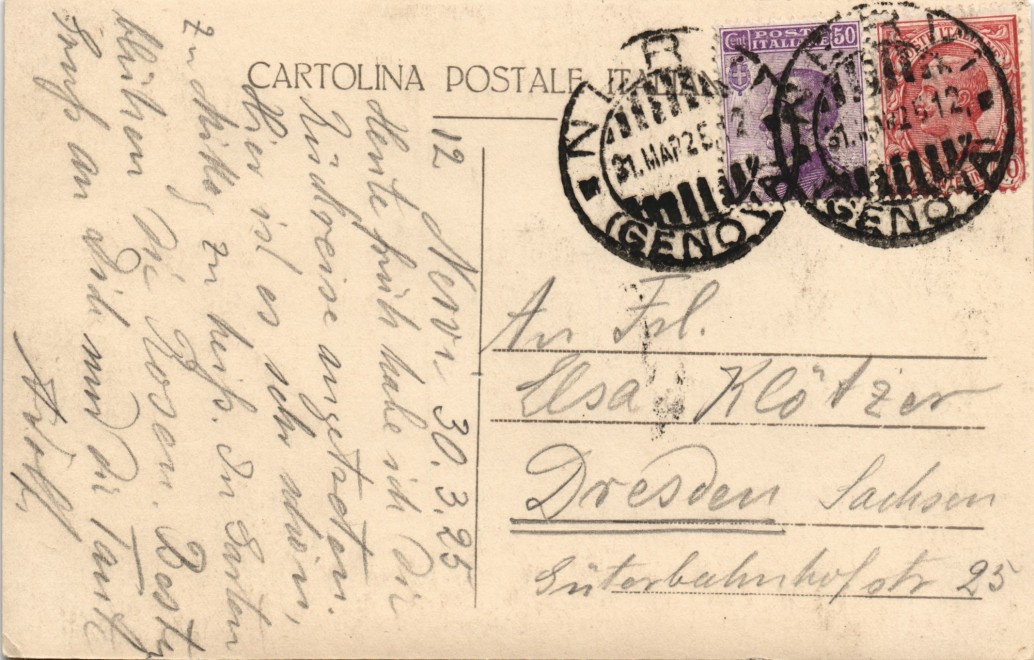 CARTOLINA POSTALE ITALIANA
Cent POSTE 50
ITALIANE
POSTE ITALIANE
NERVI
31. MAR 25. 12
(GENOVA)
NERVI
31. MAR 25. 12
(GENOVA)
12 Nervi 30.3.25
Heute früh habe ich die
Rückreise angetreten.
Hier ist es sehr schön,
zu Mittag zu heiß. In Garten
blühen die Rosen. Beste
Gruß an Dich und die Tante
Adolf.
An Frl.
Elsa Klötzer
Dresden Sachsen
Güterbahnhofstr 25